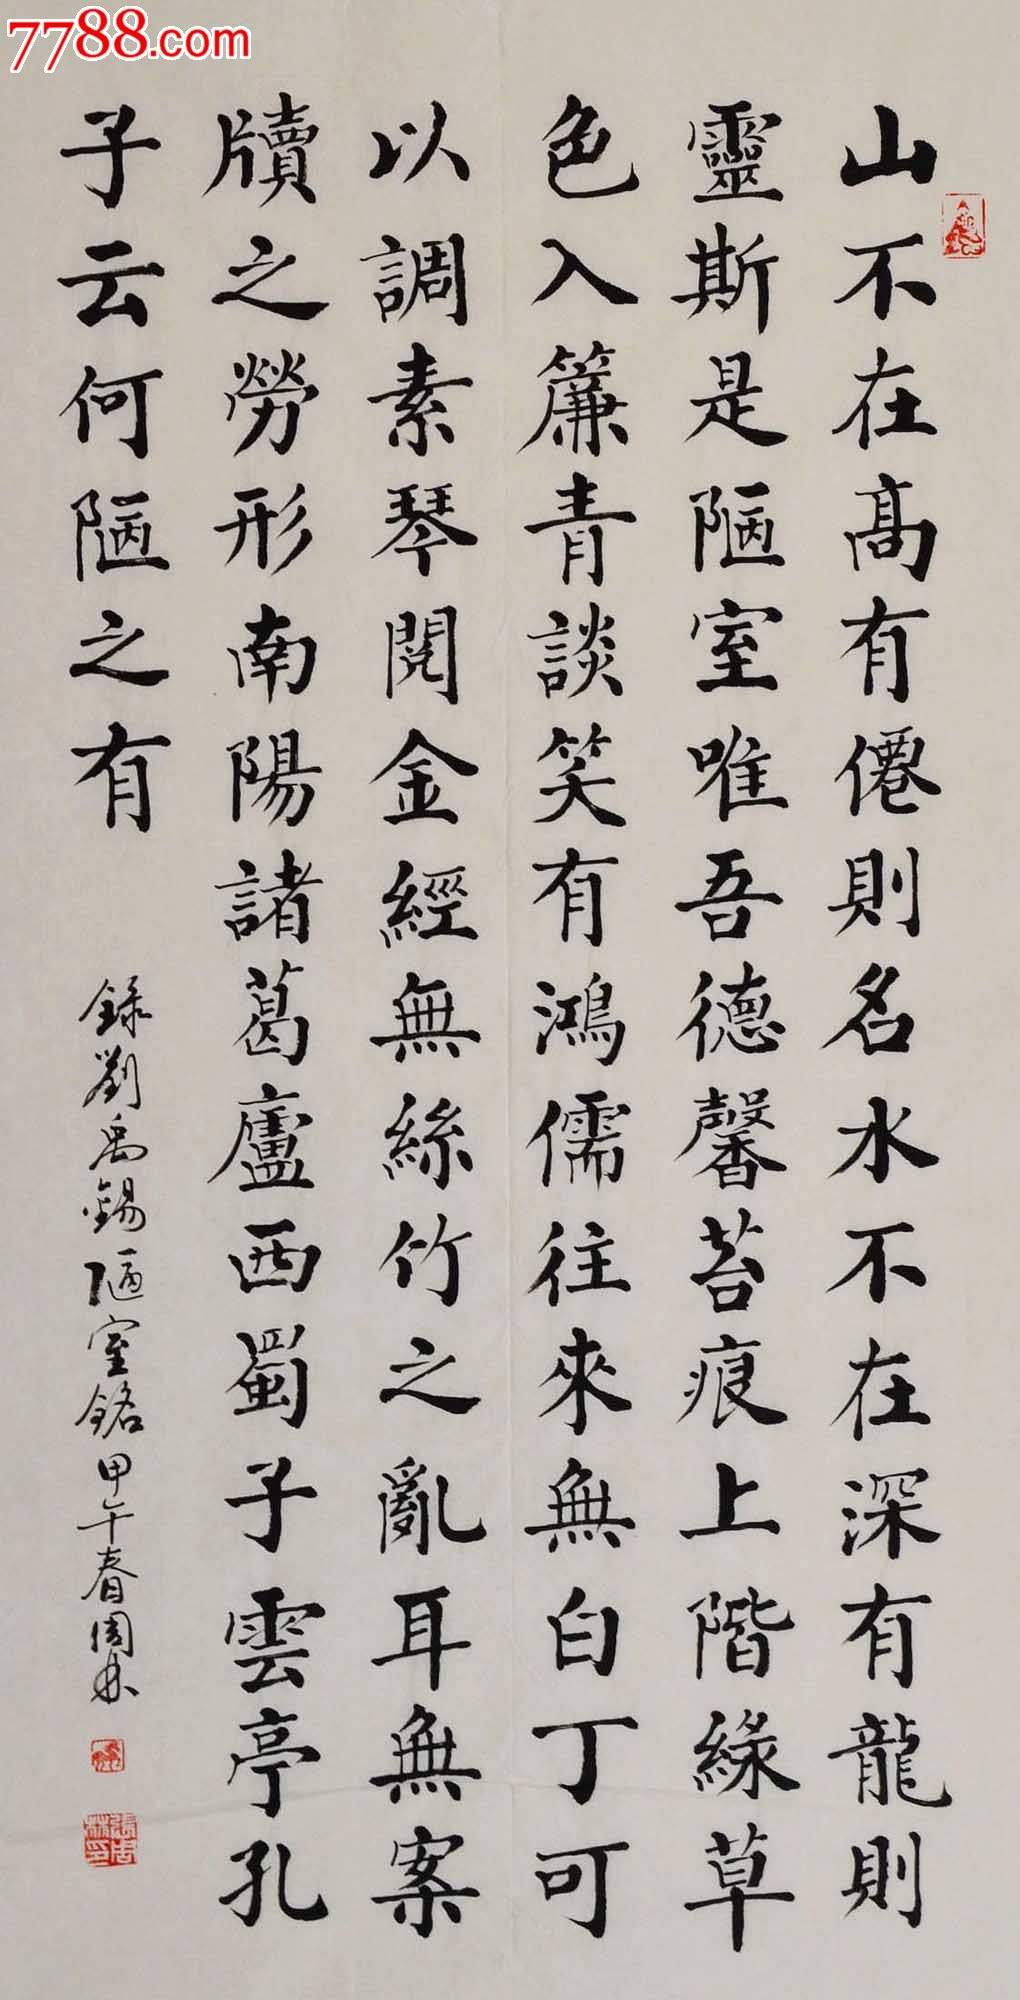 7788.com
山不在高有僊則名水不在深有龍則
靈斯是陋室唯吾德馨苔痕上階綠草
色入簾青談笑有鴻儒往來無白丁可
以調素琴閱金經無絲竹之亂耳無案
牘之勞形南陽諸葛廬西蜀子雲亭孔
子云何陋之有
錄劉禹錫陋室銘甲午春周林